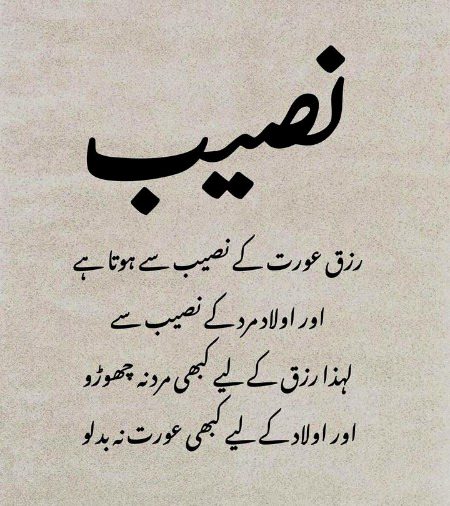 نصیب
رزق عورت کے نصیب سے ہوتا ہے
اور اولاد مرد کے نصیب سے
لہذا رزق کے لیے کبھی مرد نہ چھوڑو
اور اولاد کے لیے کبھی عورت نہ بدلو